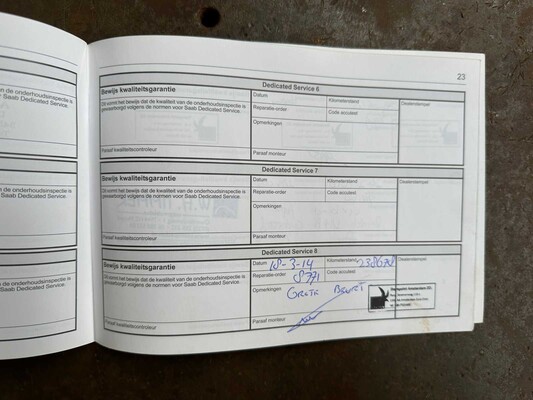 23
Dedicated Service 6
Bewijs kwaliteitsgarantie
Datum
Kilometerstand
Dealerstempel
Dit vormt het bewijs dat de kwaliteit van de onderhoudsinspectie is
gewaarborgd volgens de normen voor Saab Dedicated Service.
Reparatie-order
Code accutest
Opmerkingen
Paraaf kwaliteitscontroleur
Paraaf monteur
Dedicated Service 7
Bewijs kwaliteitsgarantie
Datum
Kilometerstand
Dealerstempel
Dit vormt het bewijs dat de kwaliteit van de onderhoudsinspectie is
gewaarborgd volgens de normen voor Saab Dedicated Service.
Reparatie-order
Code accutest
Opmerkingen
Paraaf kwaliteitscontroleur
Paraaf monteur
Dedicated Service 8
Bewijs kwaliteitsgarantie
Datum 18-3-14
Kilometerstand 238678
Dealerstempel
Dit vormt het bewijs dat de kwaliteit van de onderhoudsinspectie is
gewaarborgd volgens de normen voor Saab Dedicated Service.
Reparatie-order 8771
Code accutest
Opmerkingen GROTE BEURT
Paraaf kwaliteitscontroleur
Paraaf monteur
n de onderhoudsinspectie is
or Saab Dedicated Service.
n de onderhoudsinspectie is
or Saab Dedicated Service.
n de onderhoudsinspectie is
or Saab Dedicated Service.